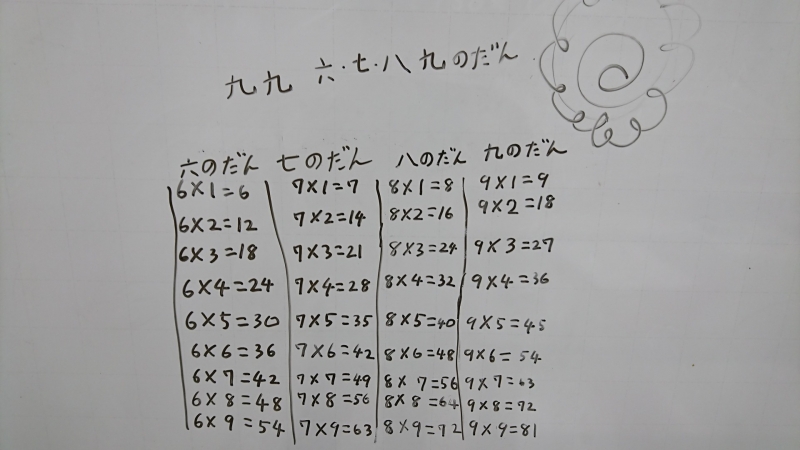 九九 六・七・八 九のだん
六のだん 七のだん 八のだん 九のだん
6×1=6 7×1=7 8×1=8 9×1=9
6×2=12 7×2=14 8×2=16 9×2=18
6×3=18 7×3=21 8×3=24 9×3=27
6×4=24 7×4=28 8×4=32 9×4=36
6×5=30 7×5=35 8×5=40 9×5=45
6×6=36 7×6=42 8×6=48 9×6=54
6×7=42 7×7=49 8×7=56 9×7=63
6×8=48 7×8=56 8×8=64 9×8=72
6×9=54 7×9=63 8×9=72 9×9=81